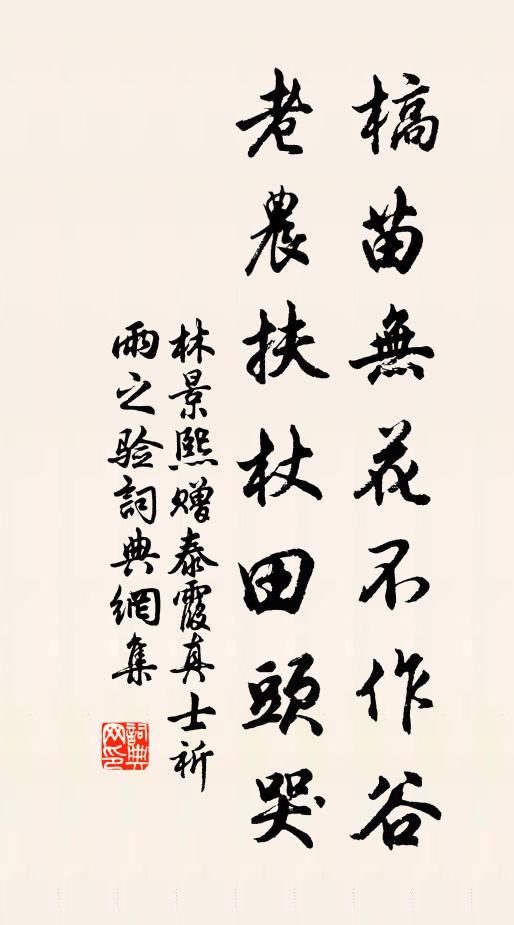 槁苗無花不作谷
老農扶杖田頭哭
林景熙赠泰霞真士祈
雨之验詞典網集
詞典网印